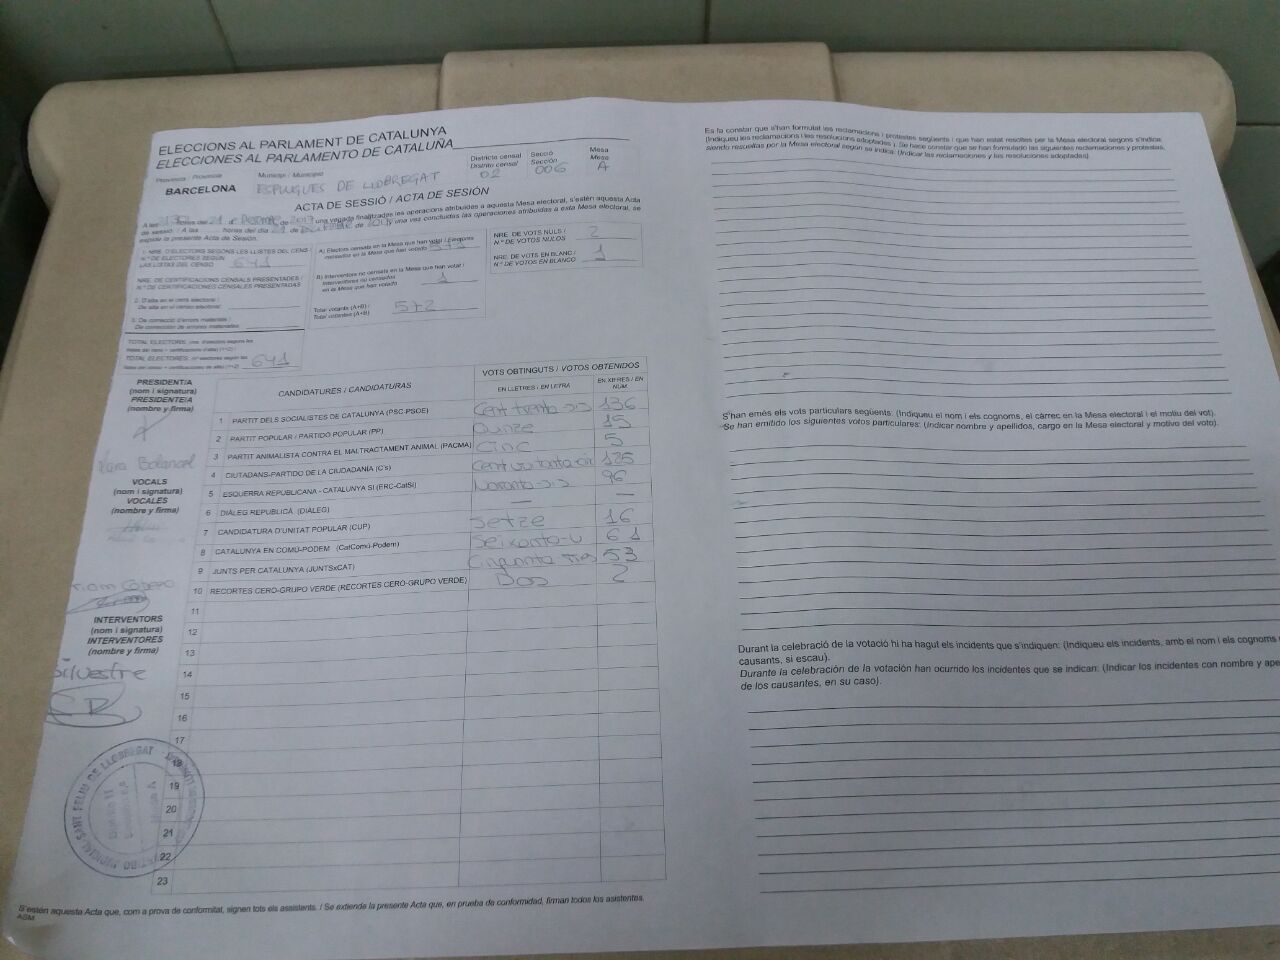 ELECCIONS AL PARLAMENT DE CATALUNYA
ELECCIONES AL PARLAMENTO DE CATALUÑA
Provincia / Provincia
BARCELONA
Municipi / Municipio
ESPLUGUES DE LLOBREGAT
Districte censal
Distrito censal
02
Secció
Sección
006
Mesa
Mesa
A
ACTA DE SESSIÓ / ACTA DE SESIÓN
A les hores del 21 de de 2017 una vegada finalitzades les operacions atribuïdes a aquesta Mesa electoral, s'estén aquesta Acta
de sessió. / A las horas del día 21 de de y una vez concluidas las operaciones atribuidas a esta Mesa electoral, se
expide la presente Acta de Sesión.
1. NRE. D'ELECTORS SEGONS LES LLISTES DEL CENS
N.º DE ELECTORES SEGÚN
LAS LISTAS DEL CENSO 641
NRE. DE CERTIFICACIONS CENSALS PRESENTADES /
N.º DE CERTIFICACIONES CENSALES PRESENTADAS
2. D'alta en el cens electoral /
De alta en el censo electoral
3. De correcció d'errors materials /
De corrección de errores materiales
TOTAL ELECTORS
TOTAL ELECTORES 641
A) Electors censats en la Mesa que han votat / Electores
censados en la Mesa que han votado
B) Interventors no censats en la Mesa que han votat /
Interventores no censados
en la Mesa que han votado 1
Total votants (A+B) /
Total votantes (A+B) 572
NRE. DE VOTS NULS /
N.º DE VOTOS NULOS 2
NRE. DE VOTS EN BLANC /
N.º DE VOTOS EN BLANCO 1
CANDIDATURES / CANDIDATURAS
VOTS OBTINGUTS / VOTOS OBTENIDOS
EN LLETRES / EN LETRA
EN XIFRES / EN NÚM.
1 PARTIT DELS SOCIALISTES DE CATALUNYA (PSC-PSOE) Cent trenta-sis 136
2 PARTIT POPULAR / PARTIDO POPULAR (PP) Quinze 15
3 PARTIT ANIMALISTA CONTRA EL MALTRACTAMENT ANIMAL (PACMA) Cinc 5
4 CIUTADANS-PARTIDO DE LA CIUDADANÍA (C's) 185
5 ESQUERRA REPUBLICANA - CATALUNYA SÍ (ERC-CatSí) Noranta-sis 96
6 DIÀLEG REPUBLICÀ (DIÀLEG) — —
7 CANDIDATURA D'UNITAT POPULAR (CUP) Setze 16
8 CATALUNYA EN COMÚ-PODEM (CatComú-Podem) Seixanta-u 61
9 JUNTS PER CATALUNYA (JUNTSxCAT) Cinquanta-tres 53
10 RECORTES CERO-GRUPO VERDE (RECORTES CERO-GRUPO VERDE) Dos 2
11
12
13
14
15
16
17
18
19
20
21
22
23
PRESIDENT/A
(nom i signatura)
PRESIDENTE/A
(nombre y firma)
VOCALS
(nom i signatura)
VOCALES
(nombre y firma)
INTERVENTORS
(nom i signatura)
INTERVENTORES
(nombre y firma)
Silvestre
SANT FELIU DE LLOBREGAT
S'estén aquesta Acta que, com a prova de conformitat, signen tots els assistents. / Se extiende la presente Acta que, en prueba de conformidad, firman todos los asistentes.
ASM
Es fa constar que s'han formulat les reclamacions i protestes següents i que han estat resoltes per la Mesa electoral segons s'indica.
(Indiqueu les reclamacions i les resolucions adoptades). Se hace constar que se han formulado las siguientes reclamaciones y protestas,
siendo resueltas por la Mesa electoral según se indica. (Indicar las reclamaciones y las resoluciones adoptadas).
S'han emès els vots particulars següents: (Indiqueu el nom i els cognoms, el càrrec en la Mesa electoral i el motiu del vot).
Se han emitido los siguientes votos particulares: (Indicar nombre y apellidos, cargo en la Mesa electoral y motivo del voto).
Durant la celebració de la votació hi ha hagut els incidents que s'indiquen: (Indiqueu els incidents, amb el nom i els cognoms
causants, si escau).
Durante la celebración de la votación han ocurrido los incidentes que se indican: (Indicar los incidentes con nombre y ape
de los causantes, en su caso).